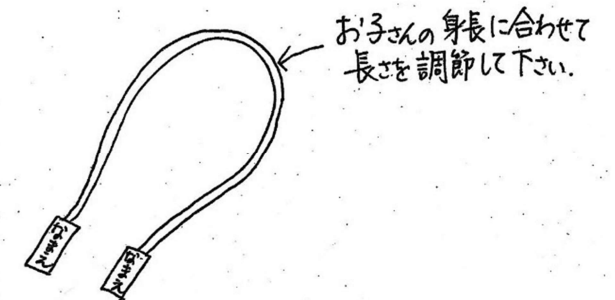 お子さんの身長に合わせて
長さを調節して下さい.
なまえ
なまえ